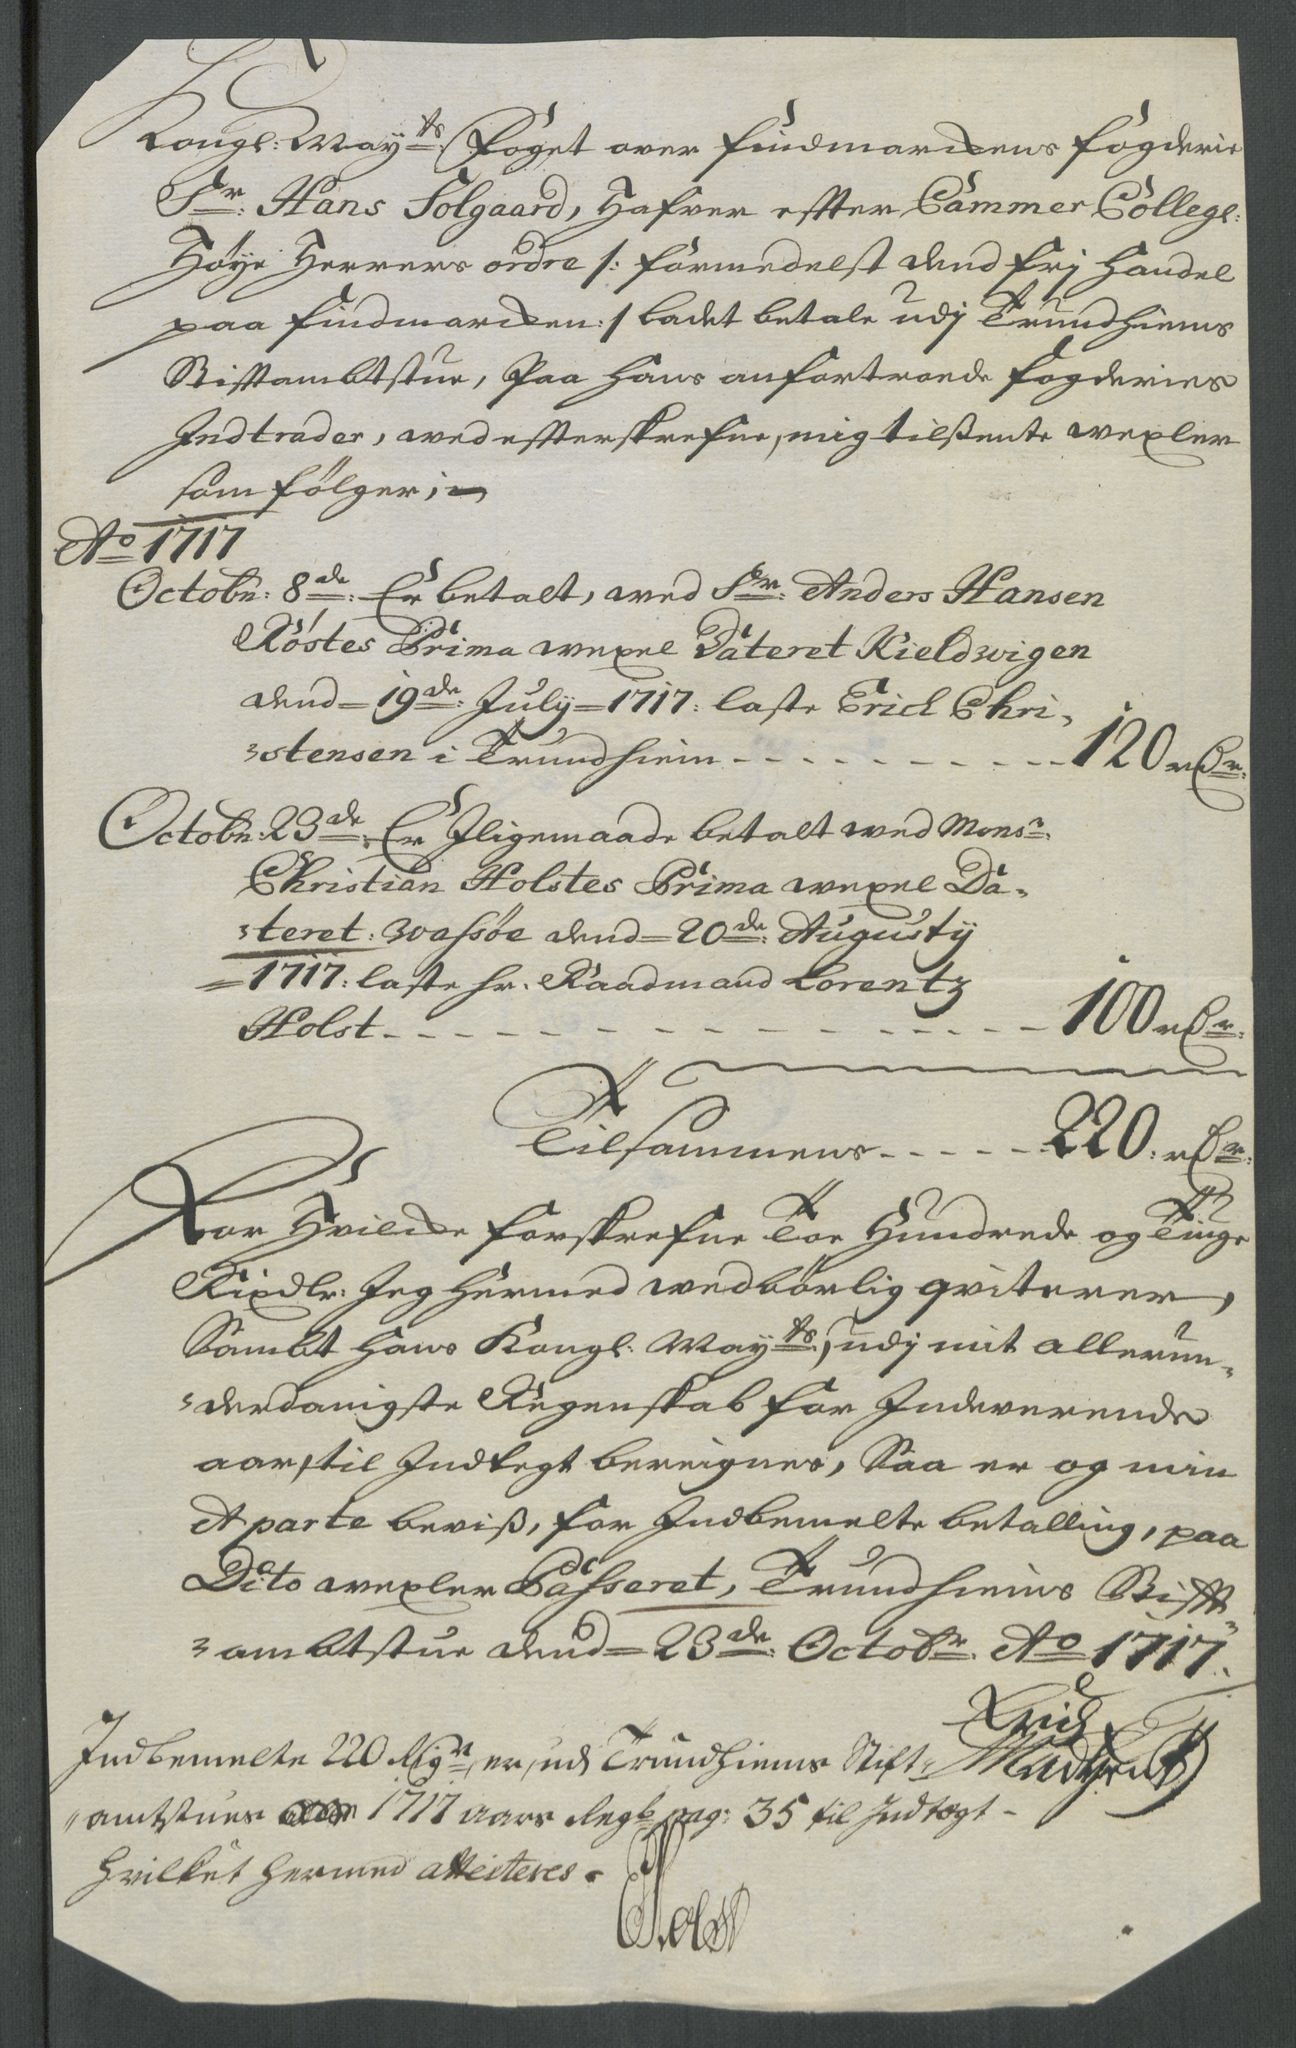 Kongl: May:ts Foget over Findmarckens fogderie
Sr: Hans Solgaard, Hafver effter Cammer Collegl:
Høye Herrers ordre /: formedelst dend frj Handel
paa Findmarcken :/ ladet betale udj Trundhiems
Stiftambtstue, Paa hans anfortroede fogderies
Indtrader, wed effterskrefne, mig tilsente wexler
som følger,
Ao 1717
Octobr: 8de: Er betalt, wed Sr: Anders Hansen
Röstes Prima wexel Dateret Kieldwigen
dend 19de: July 1717: laste Erick Chri-
stensen i Trundhiem - - - - - - - - - - 120 rdr:
Octobr: 23de: Er Iligemaade betalt wed Monsr:
Christian Holstes Prima wexel Da-
teret: Wassøe dend 20de: Augusty
1717: laste hr. Raadmand Lorentz
Holst - - - - - - - - - - - - - - - - 100 rdr:
Tilsammens - - - - - 220: rdr:
For Hvilcke forskrefne Toe Hundrede og Tiuge
Rixdlr: Jeg hermed wedbörlig qviterer,
Sambt hans Kongl: May:ts, udj mit allerun-
derdanigste Regenskab for Indewerende
aar, til Indtegt bereignes, Saa er og min
Aparte beviß, for Indbemelte betalling, paa
Dito wexler Passeret, Trundhiems Stifft
ambtstue dend 23de: Octobr: Ao 1717.
Erich
Indbemelte 220 Rixdr, er, udj Trundhiems Stift-
amtstues 1717 aars Regsb pag: 35 til Indtegt -
hvilket hermed atteisteres.
Holst